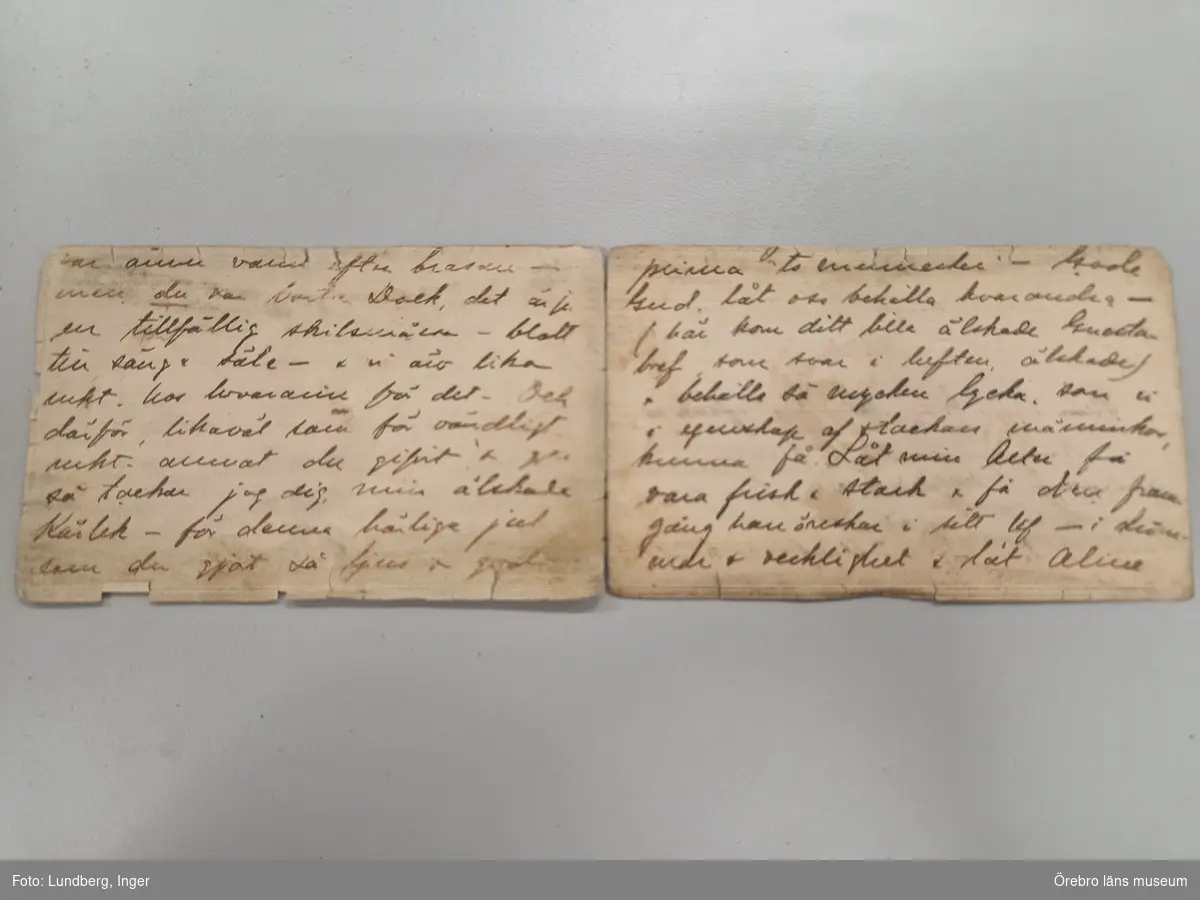 var ännu varm efter brasan —
men du var borta. Dock, det är ju
en tillfällig skilsmässa — blott
till säng & säte — & vi äro lika
nära hvarann för det. Och
därför, likaväl som för oändligt
annat du gifvit &
så tackar jag dig, min älskade
Kärlek — för denna härliga jul
som du gjort så ljus & god
prima "to mennesker" — Gode
Gud, låt oss behålla hvarandra —
(här kom ditt lilla älskade
bref som svar i luften, älskade)
& behålla så mycken lycka, som vi
i egenskap af stackars människor,
kunna få. Låt min Axel få
vara frisk & stark & få den fram
gång han önskar i sitt lif — i dröm-
mar & verklighet & låt Aline
Foto: Lundberg, Inger
Örebro läns museum